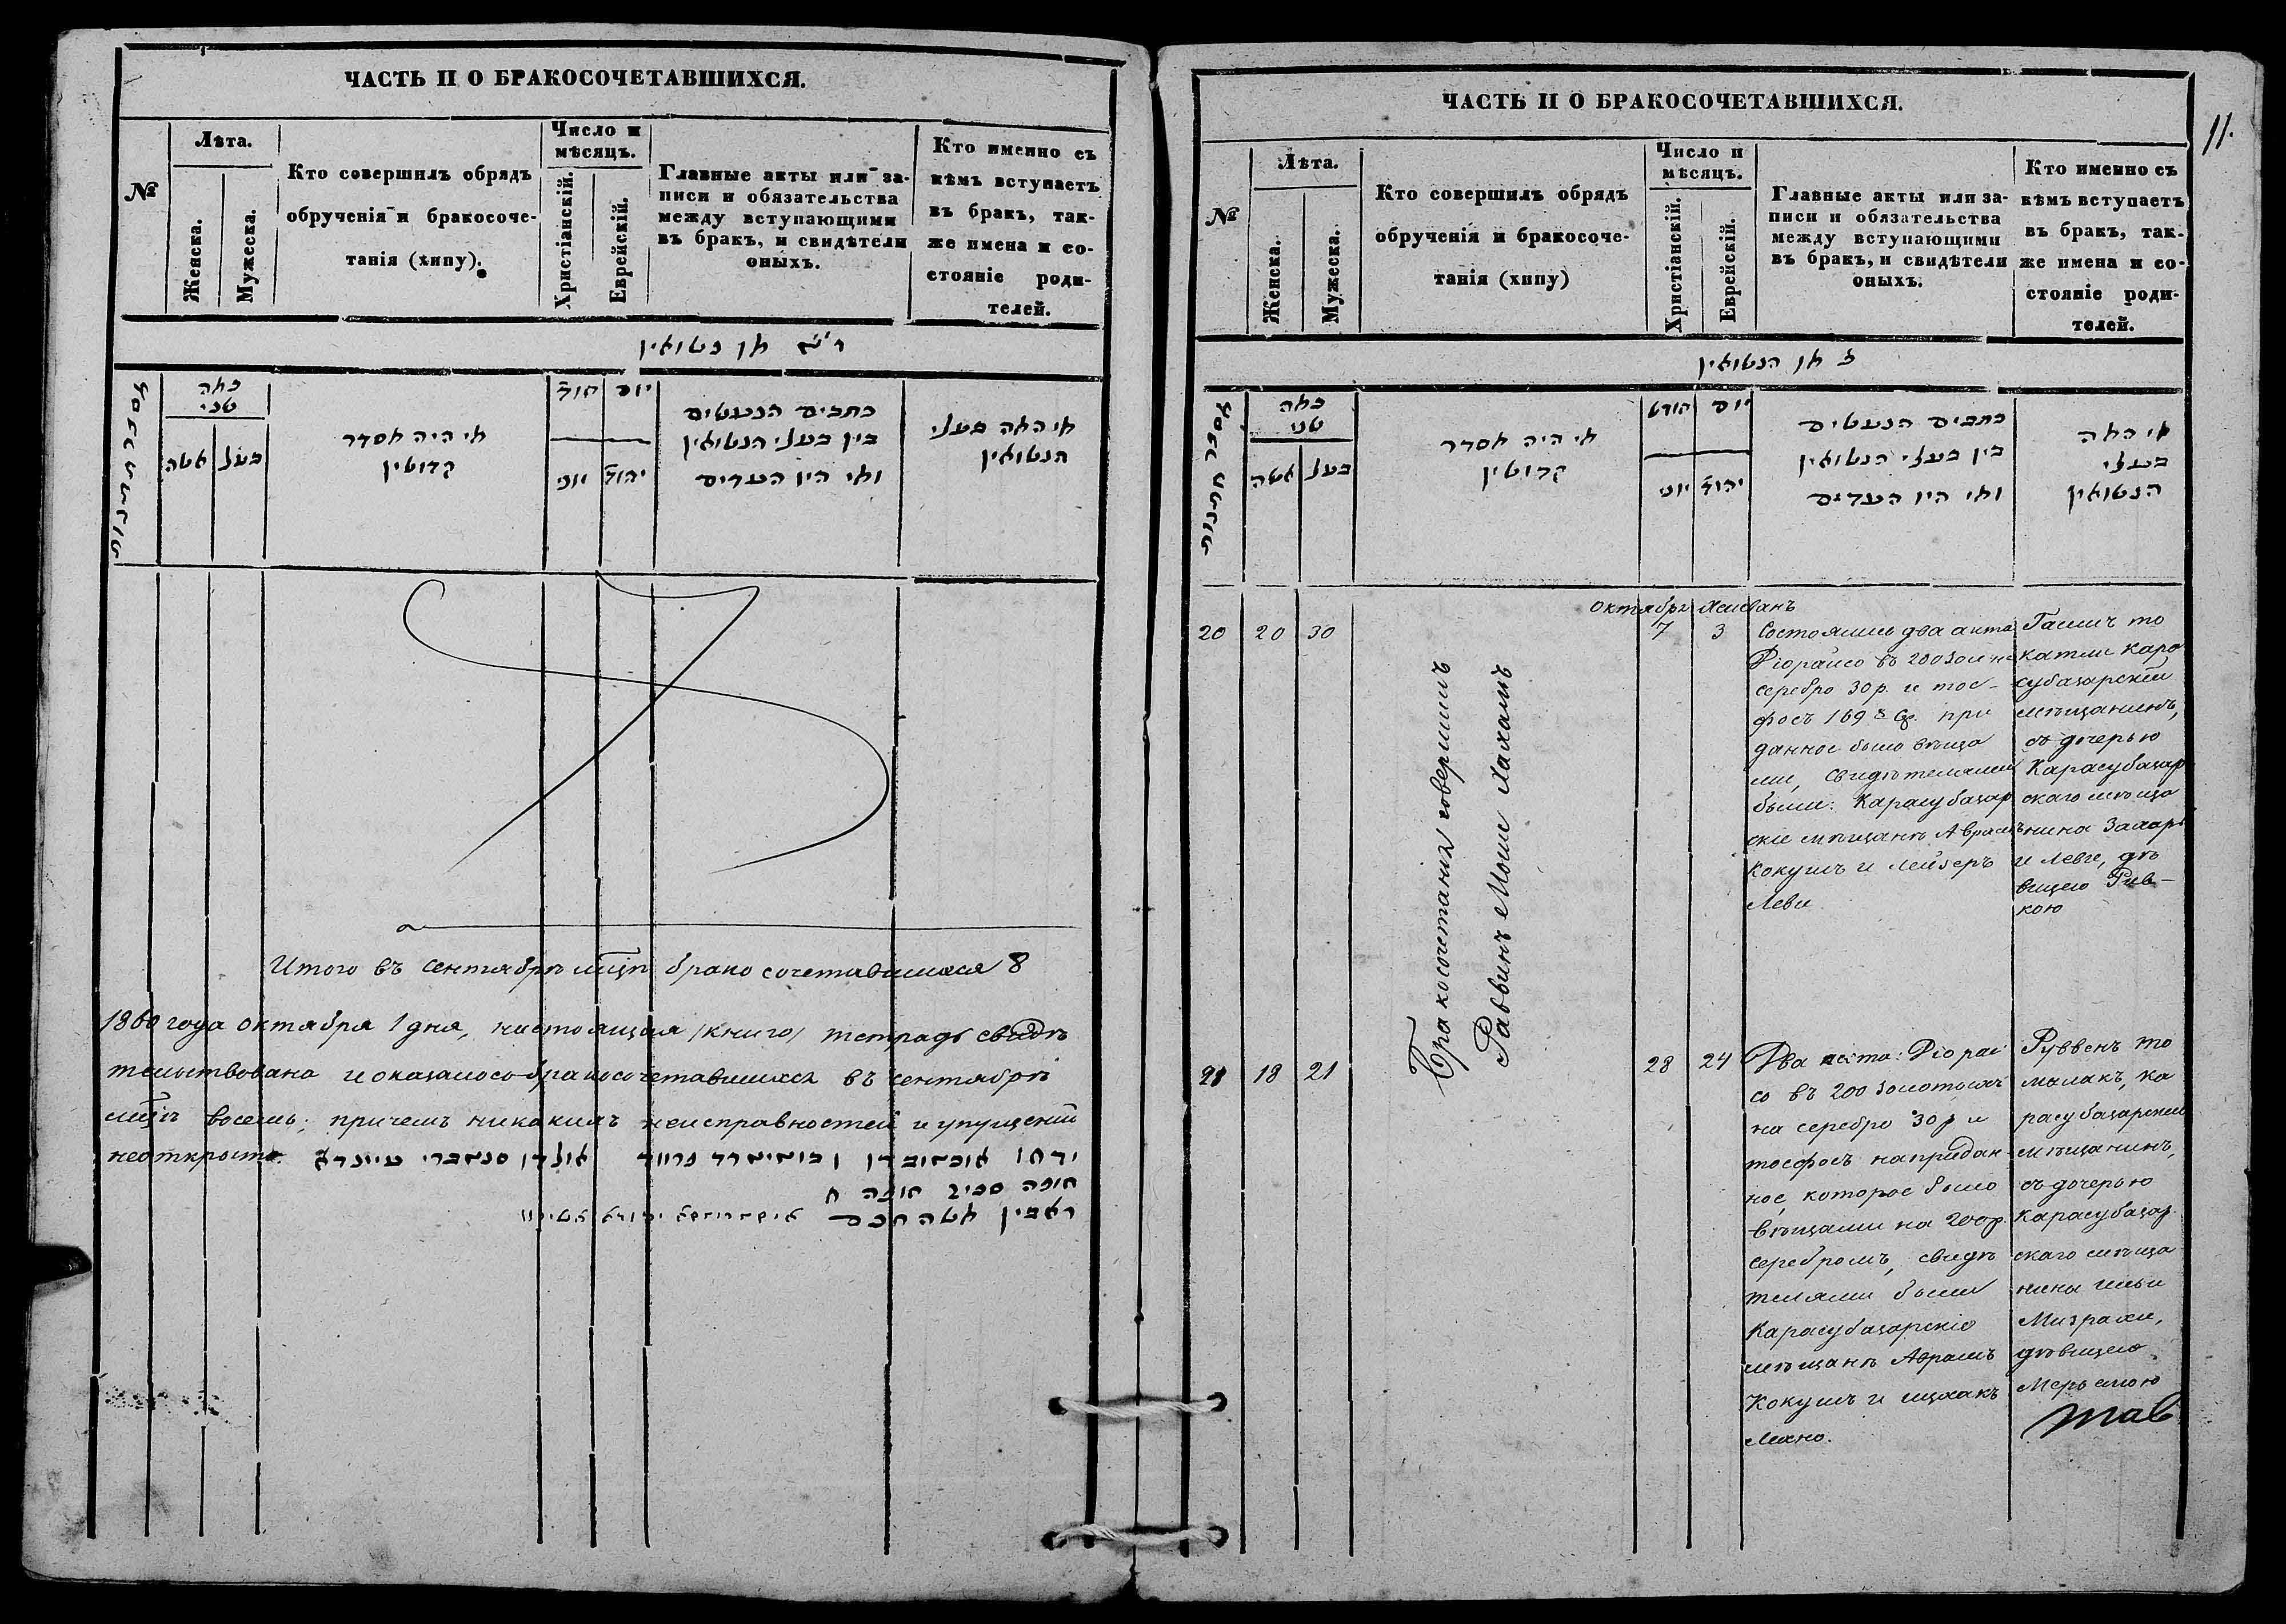 ЧАСТЬ II О БРАКОСОЧЕТАВШИХСЯ.
№
Лѣта.
Женска.
Мужеска.
Кто совершилъ обрядъ
обрученія и бракосоче-
танія (хипу).
Число и
мѣсяцъ.
Христіанскій.
Еврейскій.
Главные акты или за-
писи и обязательства
между вступающими
въ бракъ, и свидѣтели
оныхъ.
Кто именно съ
кѣмъ вступаетъ
въ бракъ, так-
же имена и со-
стояніе роди-
телей.
מן נשואין
כמה
שני
אשה
בעל
מי היה מסדר
קדושין
חוד
יום
יוני
יהוד
כתבים הנעשים
בין בעלי הנשואין
ומי היו העדים
מי המה בעלי
הנשואין
Итого въ сентябрѣ мцѣ бракосочетавшихся 8
1860 года октября 1 дня, настоящая /книга/ тетрадь свидѣ
тельствована и оказалось бракосочетавшихся въ сентябрѣ
мцѣ восемь; причемъ никакихъ неисправностей и упущеній
неоткрыто.
חופה
ЧАСТЬ II О БРАКОСОЧЕТАВШИХСЯ.
11.
№
Лѣта.
Женска.
Мужеска.
Кто совершилъ обрядъ
обрученія и бракосоче-
танія (хипу)
Число и
мѣсяцъ.
Христіанскій.
Еврейскій.
Главные акты или за-
писи и обязательства
между вступающими
въ бракъ, и свидѣтели
оныхъ.
Кто именно съ
кѣмъ вступаетъ
въ бракъ, так-
же имена и со-
стояніе роди-
телей.
מן הנשואין
כמה
שני
אשה
בעל
מי היה מסדר
קדושין
חודש
יום
יוני
יהוד
כתבים הנעשים
בין בעלי הנשואין
ומי היו העדים
מי המה
בעלי
הנשואין
октября Хешванъ
20 20 30
Бракосочетанія совершилъ
Раввинъ Моше Хахамъ
7 3
Состоялись два акта
Діорайсо въ 200 зол на
серебро 30 р. и тос-
фосъ 169 р. Ср. при
данное было вѣща
ми, свидѣтелями
были: Карасубазар
скіе мѣщанѣ Аврамъ
Кокушъ и Лейзеръ
Леви
катли Кара
субазарскій
мѣщанинъ,
съ дочерью
Карасубазар
скаго мѣща
нина Захарь
и Леви, дѣ
вицею Рив-
кою
21 18 21
28 24
Два акта: Діорай
со въ 200 золотыхъ
на серебро 30 р и
тосфосъ на придан
ное, которое было
вѣщами на 200 р.
серебромъ, свидѣ
телями были
Карасубазарскіе
мѣщанѣ Аврамъ
Кокушъ и Ицхакъ
Мано.
Руввенъ То
малакъ, Ка
расубазарскій
мѣщанинъ,
съ дочерью
Карасубазар
скаго мѣща
нина Ильи
Мизрахи,
дѣвицею
Мерьямою